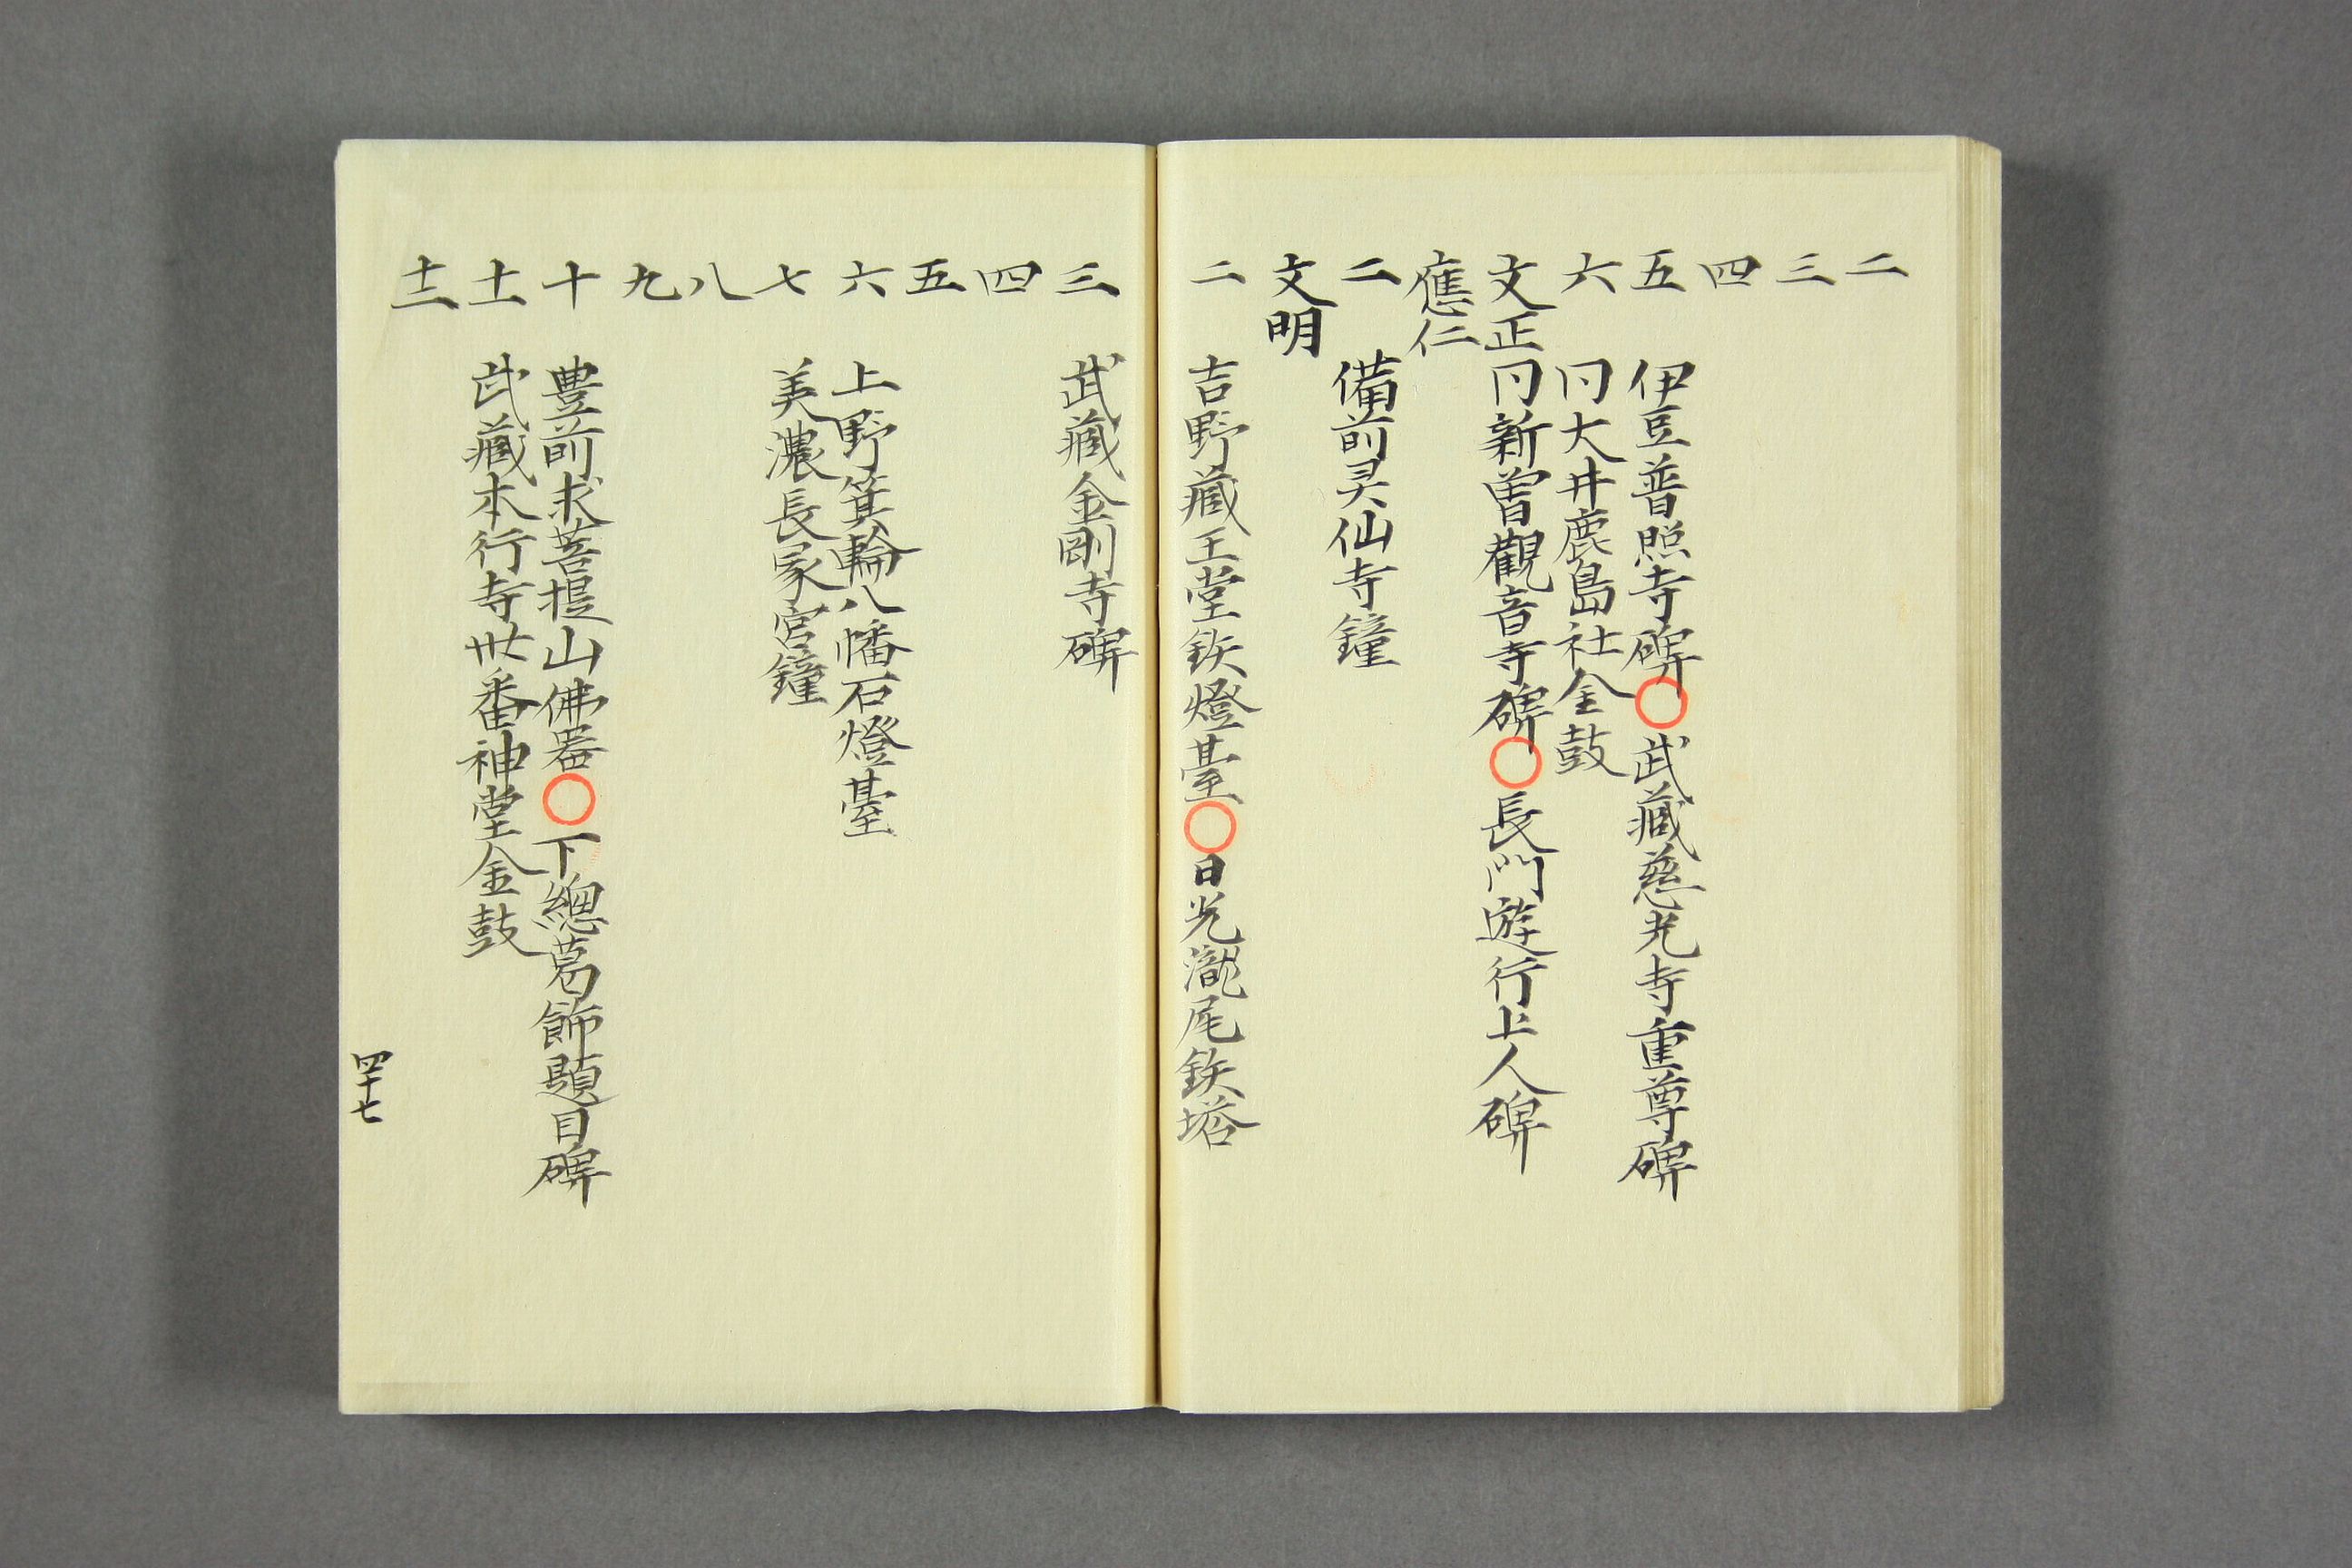 二
三
四
五 伊豆普照寺碑○武藏慈光寺重尊碑
六 冋大井鹿島社金鼓
文正 冋新曽觀音寺碑○長門遊行上人碑
應仁
二 備前灵仙寺鐘
文明
二 吉野藏王堂鉄燈臺○日光瀧尾鉄塔
三 武藏金剛寺碑
四
五
六 上野箕輪八幡石燈臺
七 美濃長冢宮鐘
八
九
十 豊前求菩提山佛器○下總葛飾題目碑
十一 武藏本行寺卅番神堂金鼓
十二
四十七